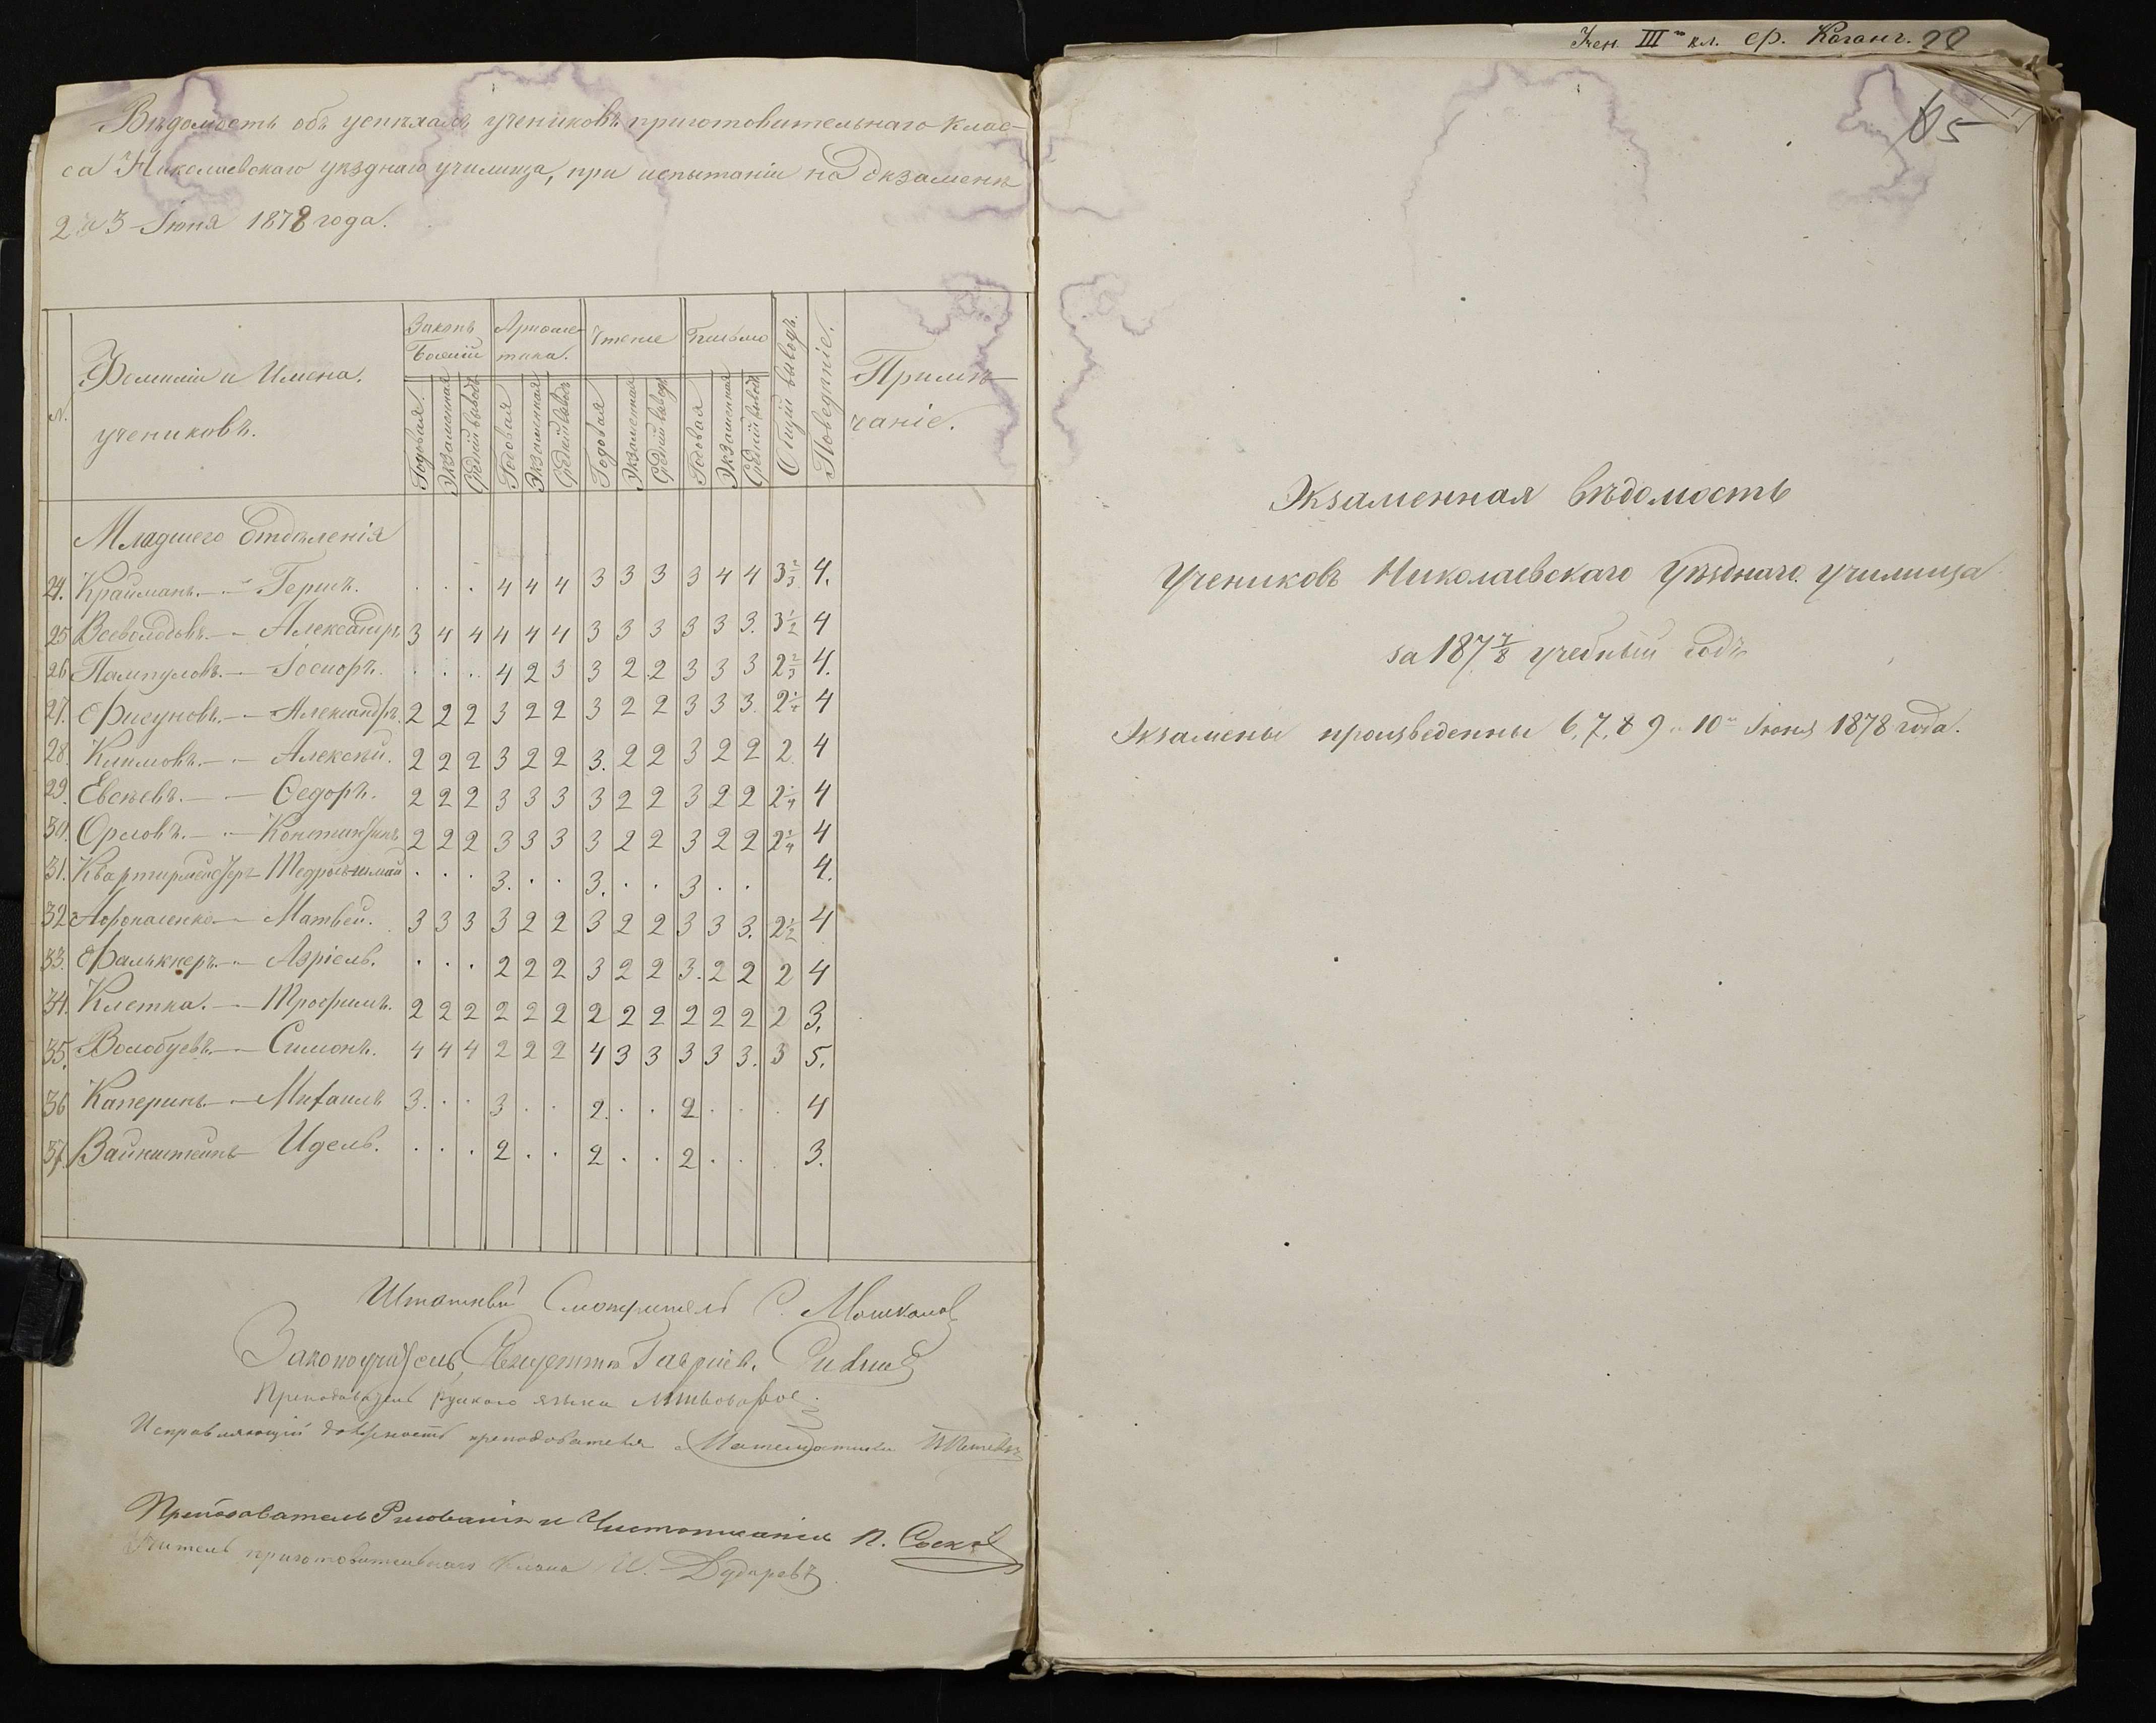 Вѣдомость объ успѣхахъ учениковъ приготовительнаго клас-
са Николаевскаго уѣзднаго училища, при испытаніи на экзаменѣ
2 и 3 Іюня 1878 года.
№. Фамиліи и Имена учениковъ. Законъ Божій Ариѳметика. Чтеніе Письмо Общій выводъ. Поведеніе. Примѣчаніе.
Годовая. Экзаменная Средній выводъ Годовая Экзаменная Средній выводъ Годовая Экзаменная Средній выводъ Годовая Экзаменная Средній выводъ
Младшего Отдѣленія
24. Крайманъ. — Гершъ. . . . 4 4 4 3 3 3 3 4 4 3 2/3 4.
25 Всеволодовъ. — Александръ 3 4 4 4 4 4 3 3 3 3 3 3. 3 1/2 4
26 Пампуловъ. — Іосифъ. . . . 4 2 3 3 2 2 3 3 3 2 2/3 4.
27. Фисуновъ. — Александръ. 2 2 2 3 2 2 3 2 2 3 3 3. 2 1/4 4
28. Климовъ. — Алексѣй. 2 2 2 3 2 2 3. 2 2 3 2 2 2. 4
29. Евсѣевъ. — Ѳедоръ. 2 2 2 3 3 3 3 2 2 3 2 2 2 1/4 4
30. Орловъ. — Константинъ 2 2 2 3 3 3 3 2 2 3 2 2 2 1/4 4
31. Квартирмейстеръ . . . 3. . . 3. . . 3 . . 4.
32 — Матвей. 3 3 3 3 2 2 3 2 2 3 3 3. 2 1/2 4
33. Фалькнеръ. — Азріель. . . . 2 2 2 3 2 2 3. 2 2 2 4
34. Клетка. — Трофимъ. 2 2 2 2 2 2 2 2 2 2 2 2 2 3.
35. Волобуевъ. — Симонъ. 4 4 4 2 2 2 4 3 3 3 3 3. 3 5.
36 Каперинъ. — Михаилъ 3. . . 3 . . 2. . . 2 . . . 4
37. Вайнштейнъ — Идель. . . . 2 . . 2 . . 2 . . . 3.
Штатный Смотритель С. Мошкалов
Законоучитель
Преподаватель русскаго языка
Исправляющій должность преподавателя Математики
Преподаватель Рисованія и Чистописанія П.
Учитель приготовительнаго класса И. Дударевъ
Учен. III го кл. ф. Каганъ. 28
65
Экзаменная вѣдомость
Учениковъ Николаевскаго Уѣзднаго училища
за 187 7/8 учебный годъ
Экзамены произведенны 6, 7, 8 9 и 10 го Іюня 1878 года.